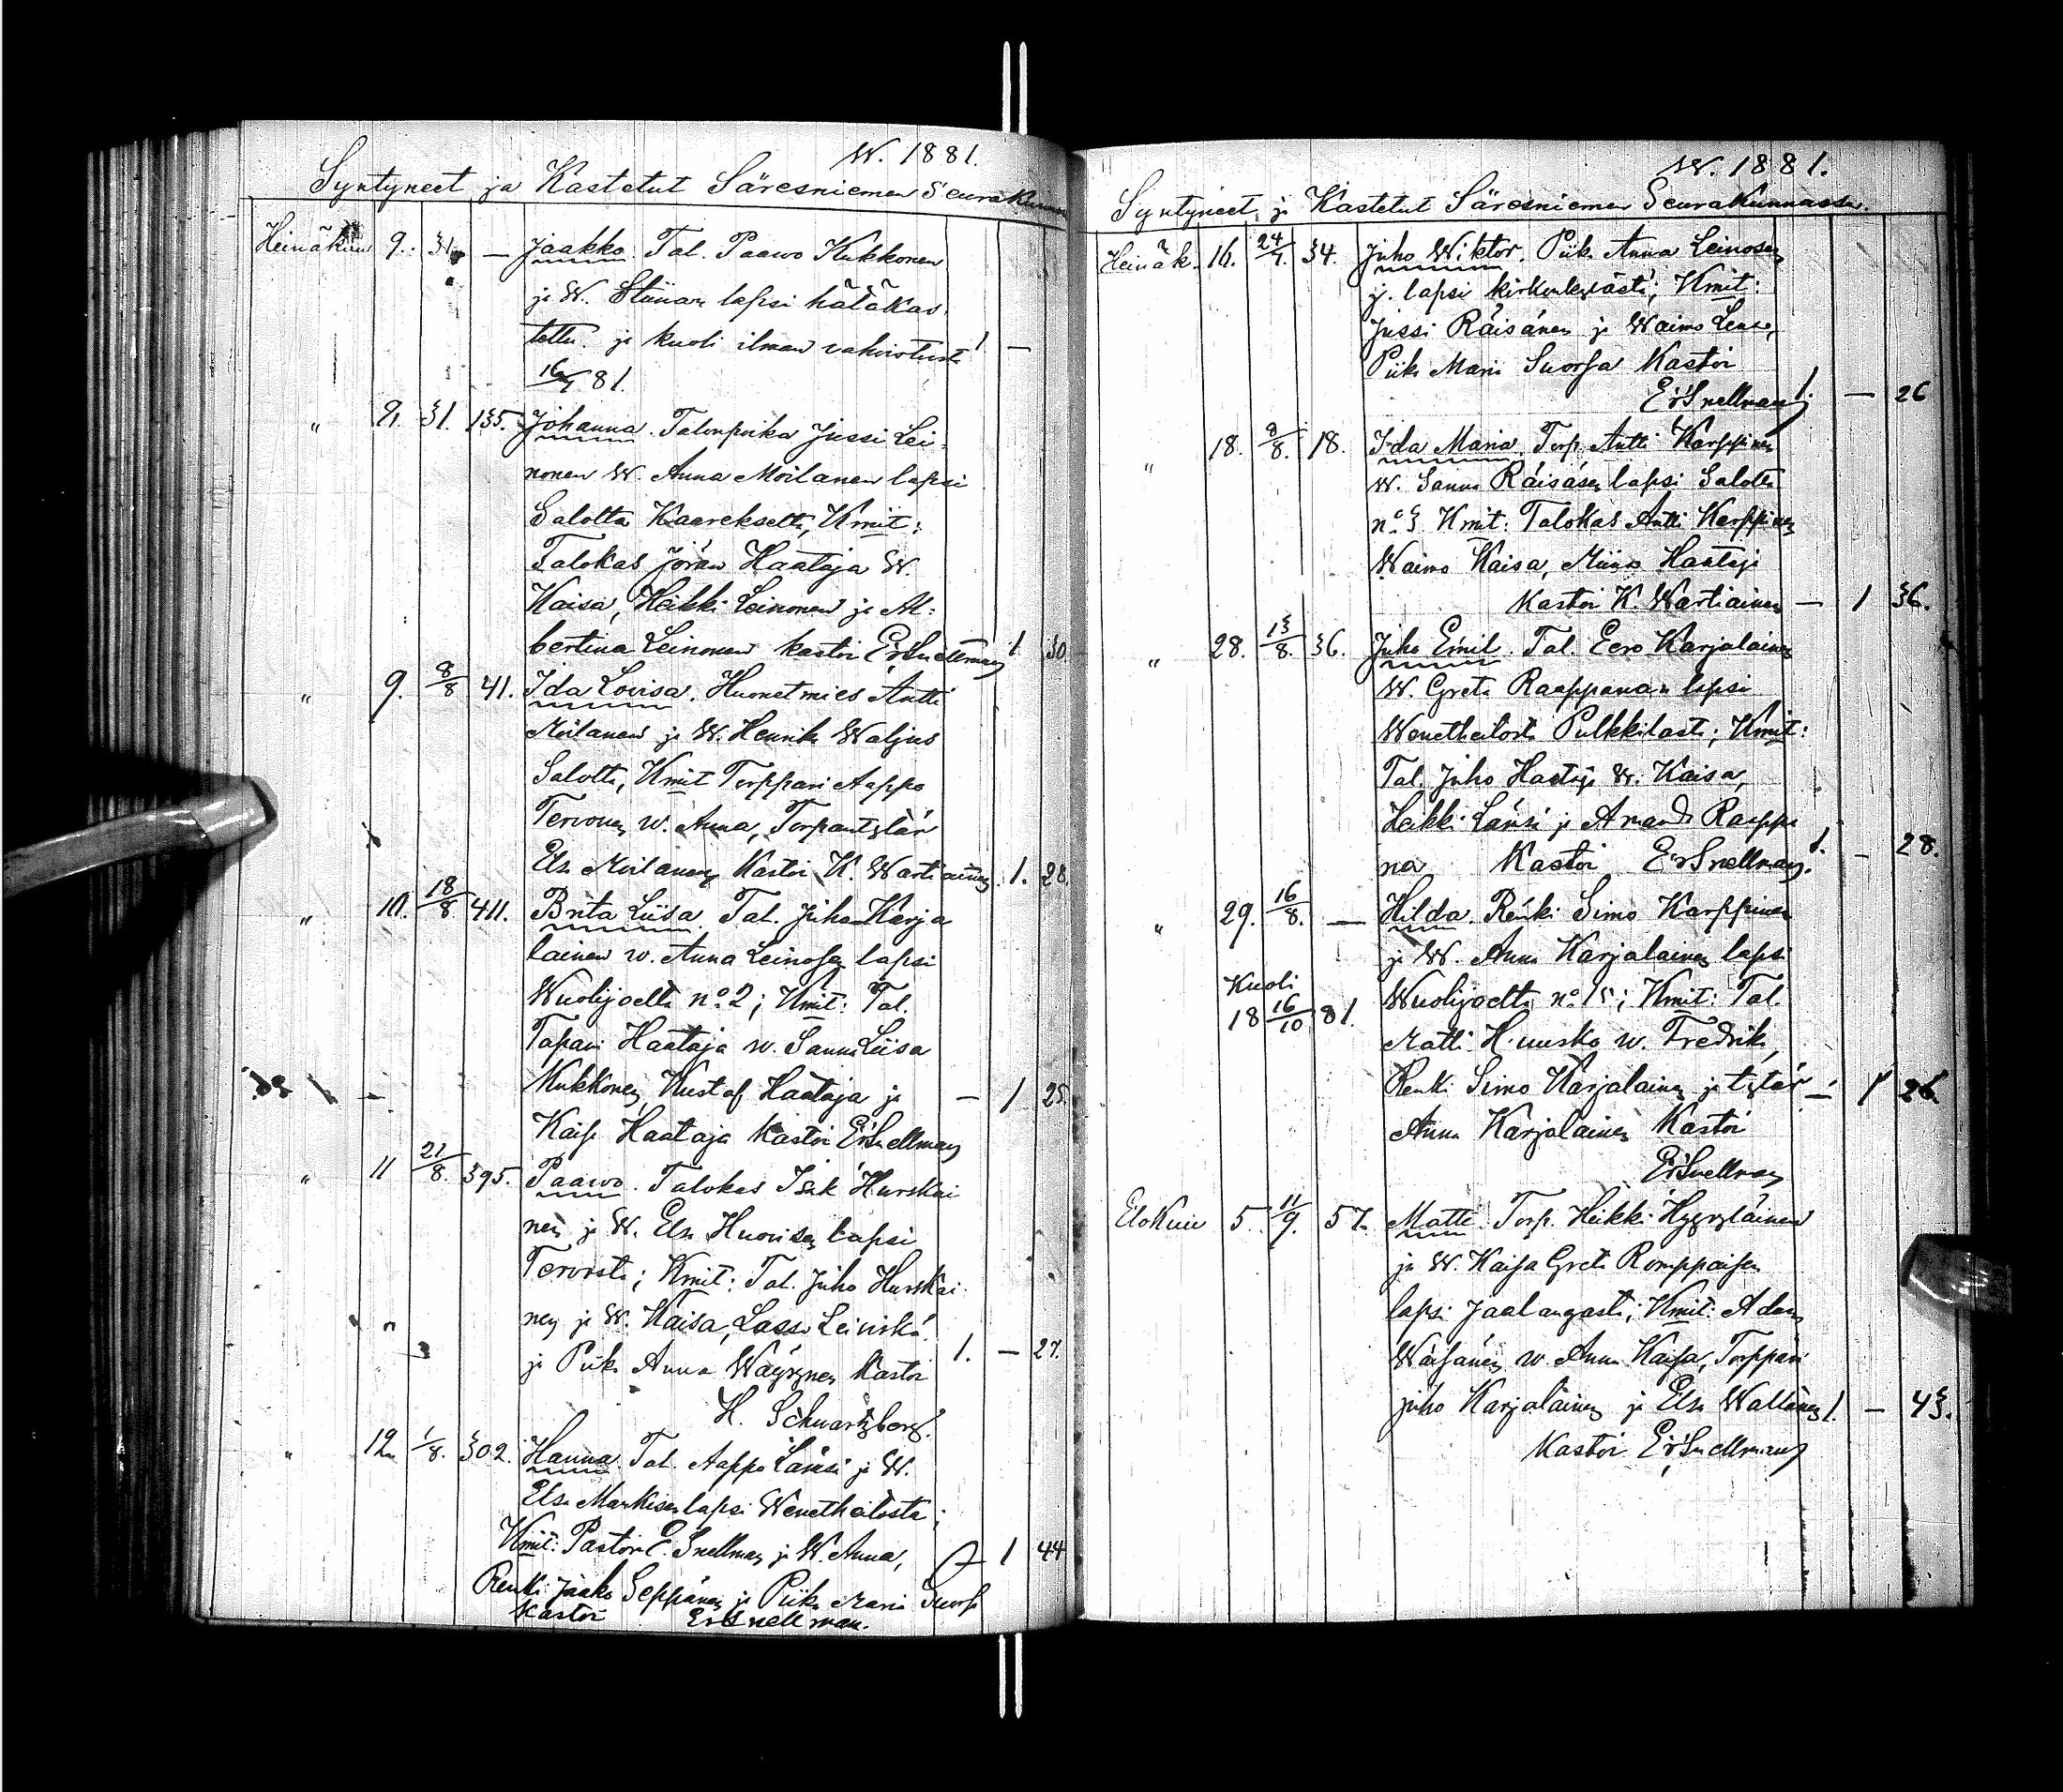 W. 1881.
Syntyneet ja Kastetut Säresniemen Seurakunn
Heinäkuu 9. 31. — Jaakko. Tal. Paawo Kukkonen
ja W. Stiinan lapsi hätäkas
tettu ja kuoli ilman vahvistusta 1 —
16/7 81.
" 9. 31. 135. Johanna. Talonpoika Jussi Lei-
nonen W. Anna Moilanen lapsi
Salolta Kaarekselta, Kmit:
Talokas Jöran Haataja W.
Kaisa, Heikki Leinonen ja Al-
bertina Leinonen kastoi ErSnellman 1 30.
" 9. 8/8 41. Ida Lovisa. Huonetmies Antti
Moilanen ja W. Henrika Waljus
Salolta, Kmit Torppari Aappo
Tervonen w. Anna, Torpantytär
Elsa Moilanen Kastoi K. Wartiainen. 1. 28.
" 10. 18/8 411. Brita Liisa. Tal. Juho Karja
lainen w. Anna Leinosen lapsi
Wuolijoelta no. 2; Kmit: Tal.
Tapani Haataja w. Sanna Liisa
Kukkonen, Kustaf Haataja ja — 1 25.
Kaisa Haataja Kastoi ErSnellman
" 11 21/8. 395. Paawo. Talokas Isak Hurskai
nen ja W. Elsa Huovisen lapsi
; Kmit: Tal. Juho Hurskai-
nen ja W. Kaisa, Lasse
ja Piika Anna Wäyrynen Kastoi 1. — 27.
H. Schwartzberg.
" 12. 1/8. 302. Hanna. Tal. Aappo Länsi ja W.
Elsa Markisen lapsi Wenetheitosta;
Kmit: Pastori E. Snellman ja W. Anna, 1 44
Renki Jaako Seppänen ja Piika Maria Suorsa
Kastoi ErSnellman.
W. 1881.
Syntyneet ja Kastetut Säresniemen Seurakunnassa.
Heinäk. 16. 24/7. 34. Juho Wiktor. Piika Anna Leinosen
j. lapsi kirkonkylästä; Kmit:
Jussi Räisänen ja Waimo Leena,
Piika Maria Suorsa Kastoi
ErSnellman 1. — 26
" 18. 8/8. 18. Ida Maria. Torp. Antti Karppinen
W. Sanna Räisäsen lapsi Salolta
no. 3 Kmit: Talokas Antti Karppinen
Waimo Kaisa, Haataja
Kastoi K. Wartiainen — 1 36.
" 28. 13/8. 36. Juho Emil. Tal. Eero Karjalainen
W. Greta Raappanan lapsi
Wenetheitosta Pulkkilasta; Kmit:
Tal. Juho Haataja W. Kaisa,
Heikki Länsi ja Amanda Raappa
na Kastoi ErSnellman. 1. — 28.
" 29. 16/8. — Hilda. Renki Simo Karppinen
ja W. Anna Karjalainen lapsi
Kuoli
18 16/10 81. Wuolijoelta no. 15; Kmit: Tal.
Matti Huusko w. Fredrika,
Renki Simo Karjalainen ja tytär — 1 26.
Anna Karjalainen Kastoi
ErSnellman
Elokuu 5. 11/9. 57. Matti. Torp. Heikki Hyyryläinen
ja W. Kaisa Greta Romppaisen
lapsi Jaalangasta; Kmit: Adam
Wäisänen w. Anna Kaisa, Torppari
Juho Karjalainen ja Elsa 1. — 43.
Kastoi ErSnellman